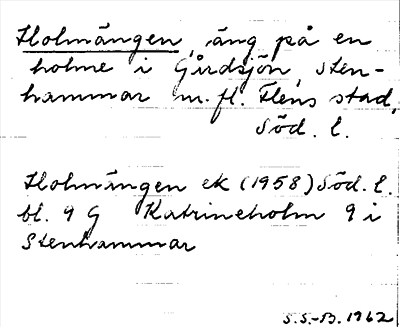 Holmängen, äng på en
holme i Gårdsjön, Sten-
hammar m.fl. Flens stad,
Söd. l.
Holmängen ek (1958) Söd. l.
bl. 9 G Katrineholm 9 i
Stenhammar
S.S.-B. 1962